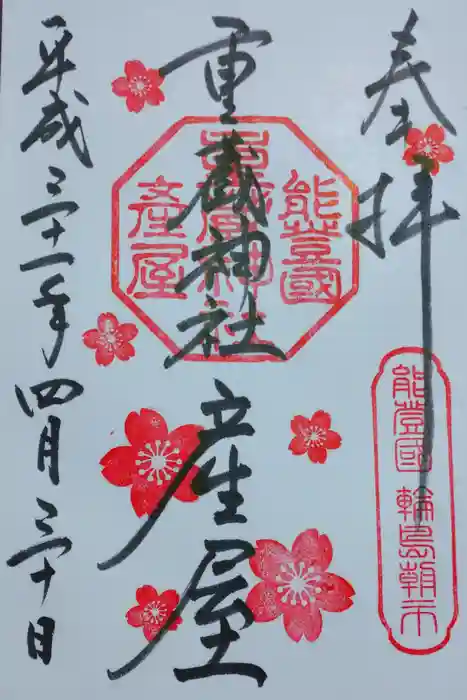 奉拝
重蔵神社
産屋
平成三十一年四月三十日
能登國
重蔵神社
産屋
能登國 輪島朝市